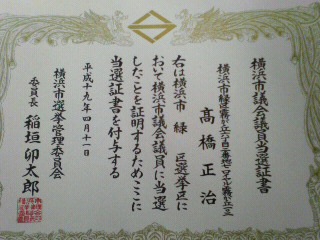 横浜市議会議員当選証書
横浜市緑区霧が丘
高橋正治
右は横浜市 緑 区選挙区に
おいて横浜市議会議員に当選
したことを証明するためここに
当選証書を付与する
平成十九年四月十一日
横浜市選挙管理委員会
委員長 稲垣卯太郎